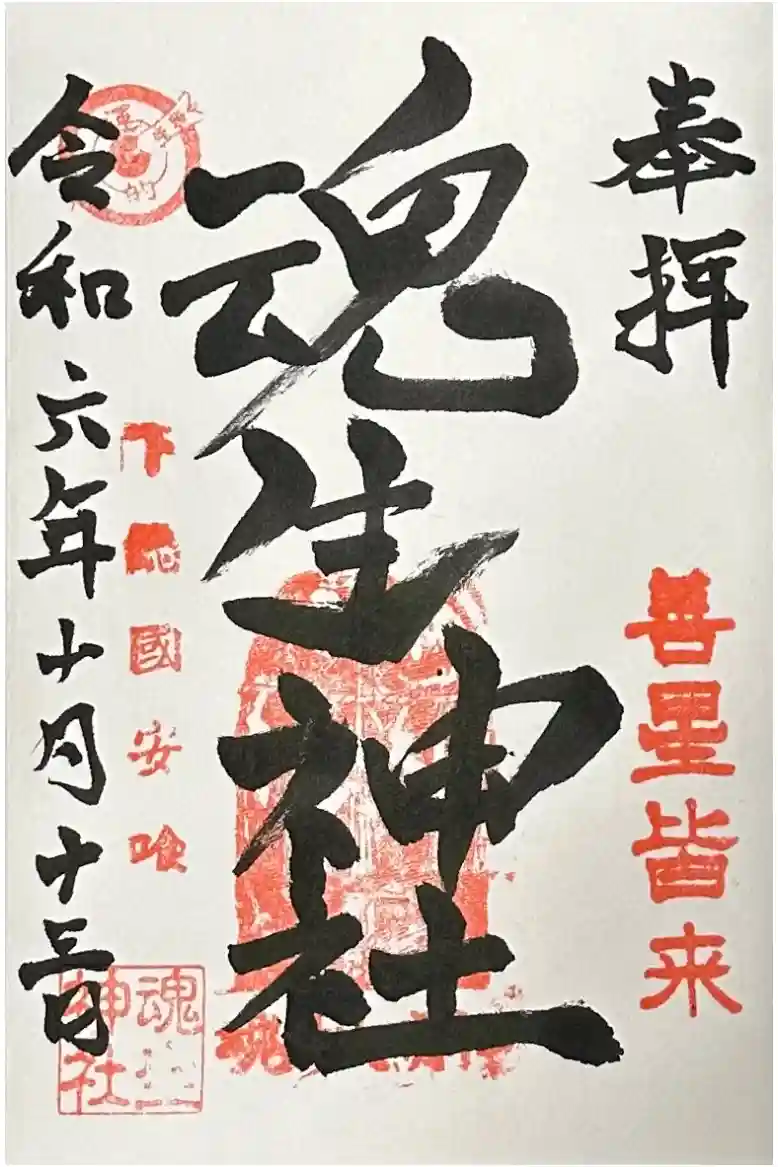 奉拝
善星皆来
魂生神社
下総國安喰
令和六年十月十三日
魂生
神社